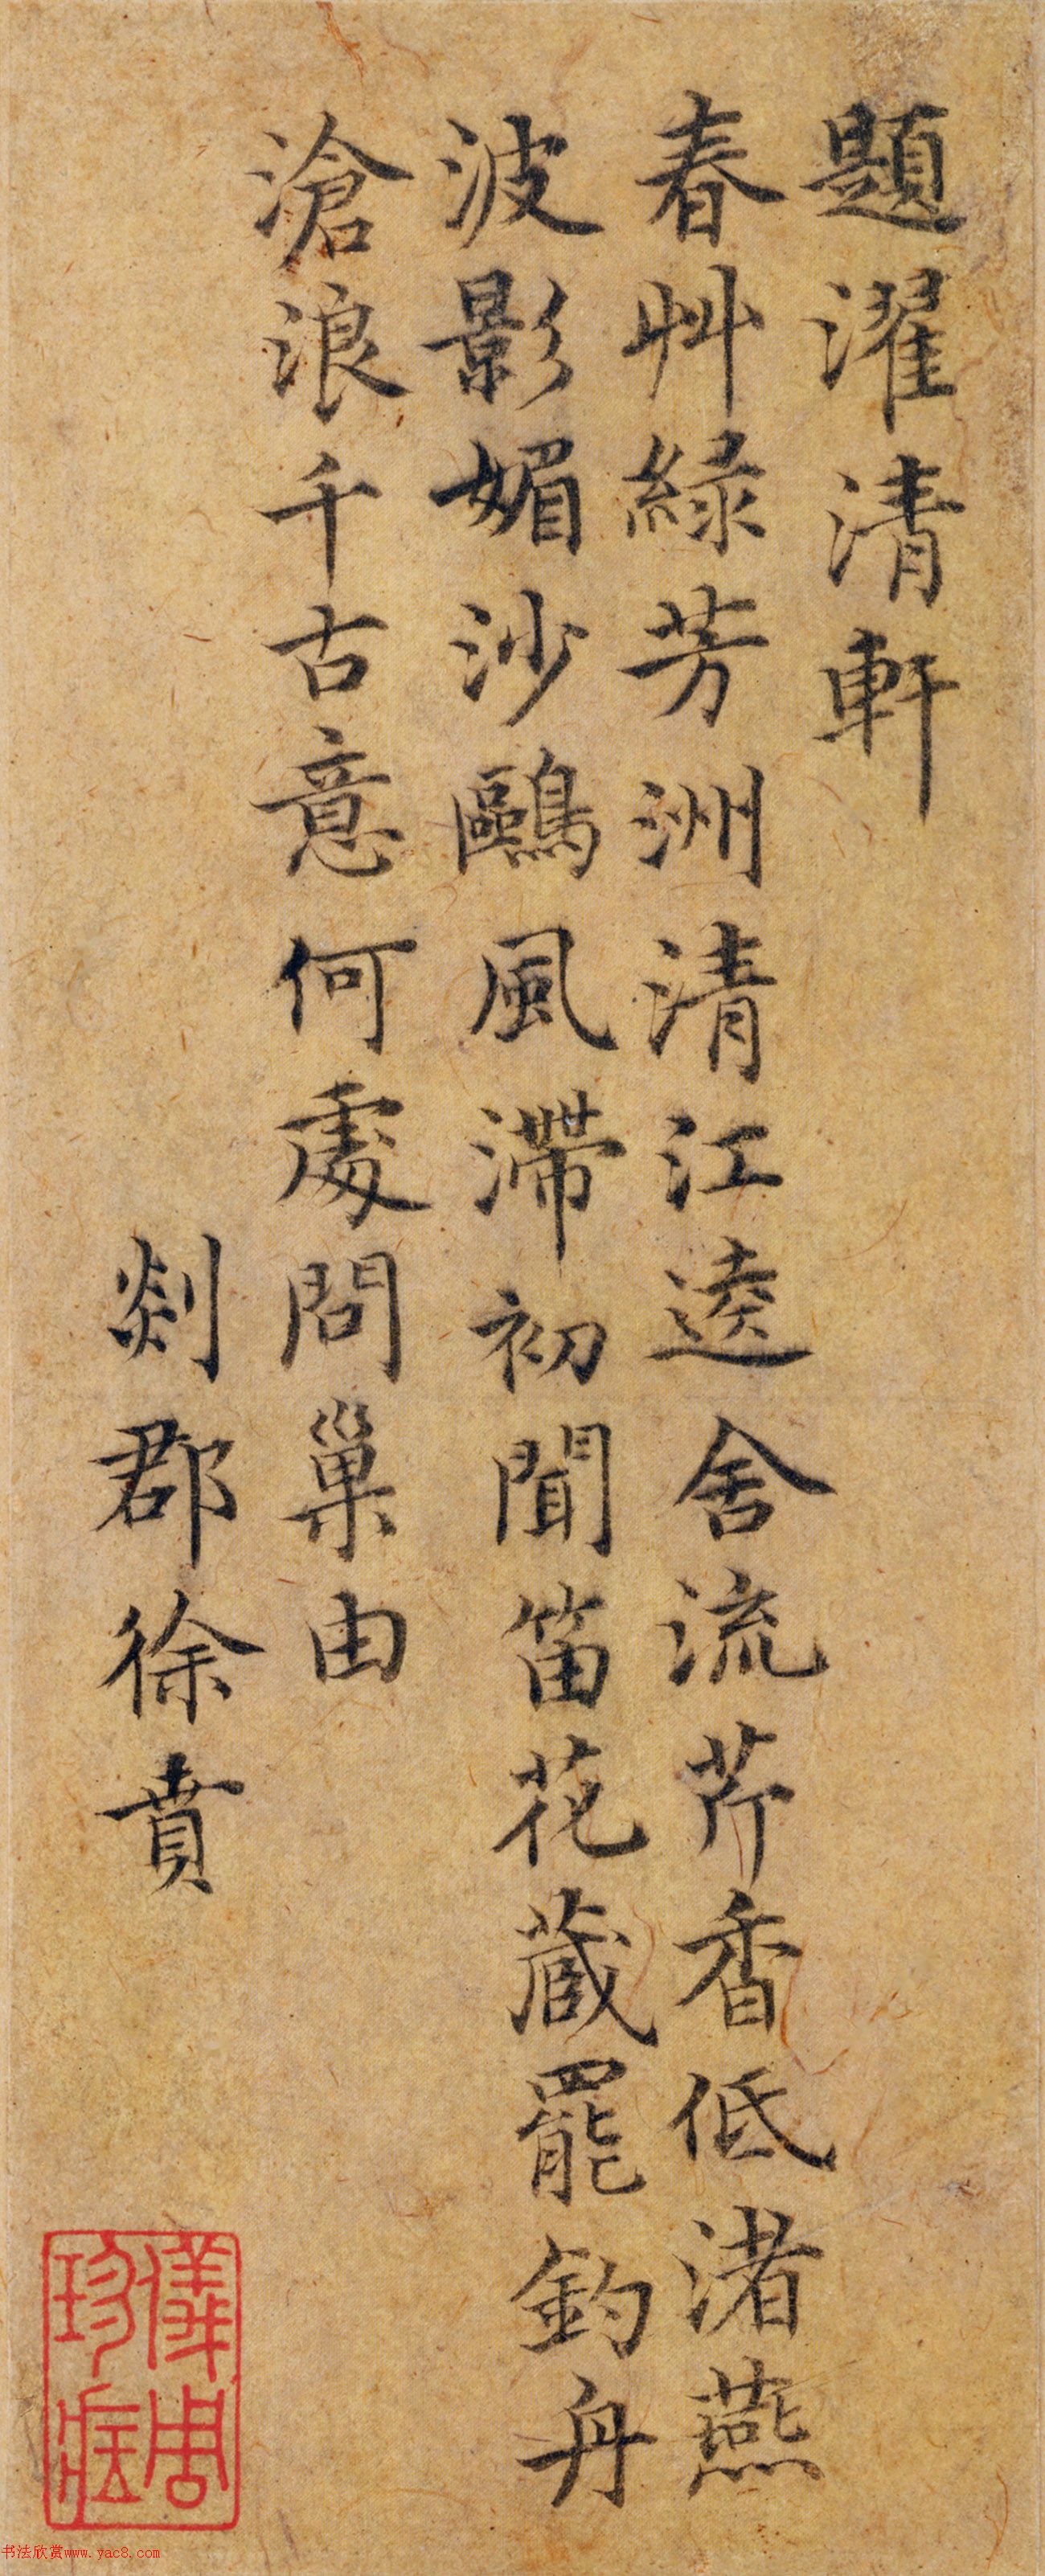 題濯清軒
春艸綠芳洲清江逵舍流芹香低渚燕
波影媚沙鷗風滯初聞笛花蔵罷釣舟
滄浪千古意何處問巢由
剡郡徐賁
儀周珍藏
书法欣赏www.yac8.com